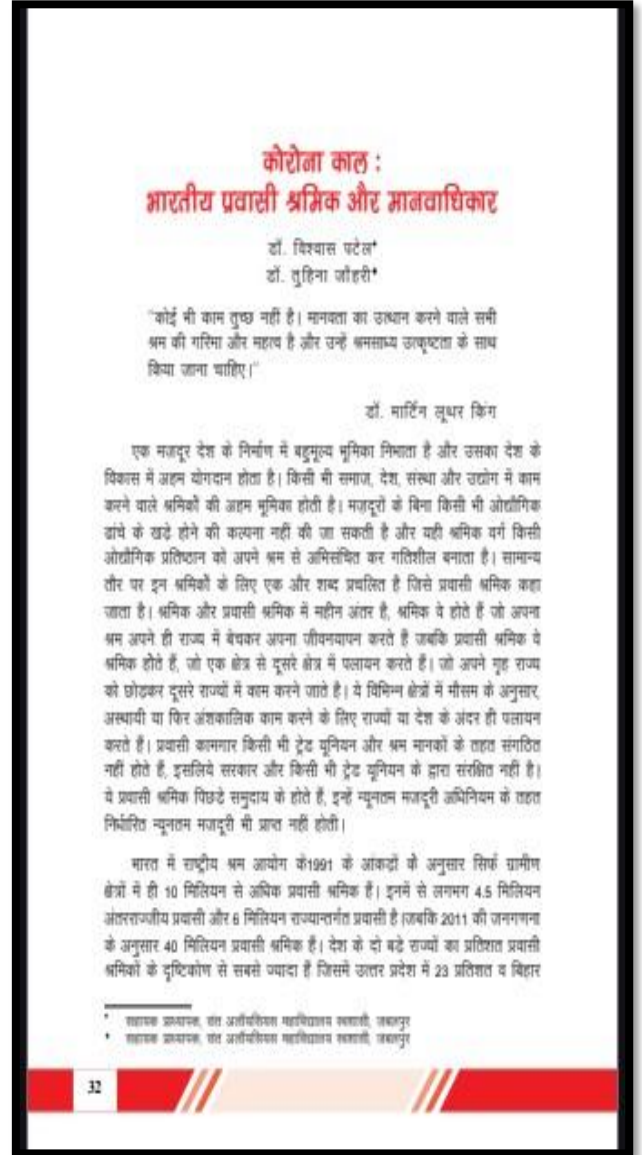 कोरोना काल :
भारतीय प्रवासी श्रमिक और मानवाधिकार
डॉ. विश्वास पटेल*
डॉ. तुहिना जौहरी*
"कोई भी काम तुच्छ नहीं है। मानवता का उत्थान करने वाले सभी
श्रम की गरिमा और महत्व है और उन्हें श्रमसाध्य उत्कृष्टता के साथ
किया जाना चाहिए।"
डॉ. मार्टिन लूथर किंग
एक मज़दूर देश के निर्माण में बहुमूल्य भूमिका निभाता है और उसका देश के
विकास में अहम योगदान होता है। किसी भी समाज, देश, संस्था और उद्योग में काम
करने वाले श्रमिकों की अहम भूमिका होती है। मज़दूरों के बिना किसी भी ओद्यौगिक
ढांचे के खड़े होने की कल्पना नहीं की जा सकती है और यही श्रमिक वर्ग किसी
ओद्यौगिक प्रतिष्ठान को अपने श्रम से अभिसंचित कर गतिशील बनाता है। सामान्य
तौर पर इन श्रमिकों के लिए एक और शब्द प्रचलित है जिसे प्रवासी श्रमिक कहा
जाता है। श्रमिक और प्रवासी श्रमिक में महीन अंतर है, श्रमिक वे होते हैं जो अपना
श्रम अपने ही राज्य में बेचकर अपना जीवनयापन करते हैं जबकि प्रवासी श्रमिक वे
श्रमिक होते हैं, जो एक क्षेत्र से दूसरे क्षेत्र में पलायन करते हैं। जो अपने गृह राज्य
को छोड़कर दूसरे राज्यों में काम करने जाते है। ये विभिन्न क्षेत्रों में मौसम के अनुसार,
अस्थायी या फिर अंशकालिक काम करने के लिए राज्यों या देश के अंदर ही पलायन
करते हैं। प्रवासी कामगार किसी भी ट्रेड यूनियन और श्रम मानकों के तहत संगठित
नहीं होते हैं, इसलिये सरकार और किसी भी ट्रेड यूनियन के द्वारा संरक्षित नहीं है।
ये प्रवासी श्रमिक पिछडे समुदाय के होते हैं, इन्हें न्यूनतम मजदूरी अधिनियम के तहत
निर्धारित न्यूनतम मजदूरी भी प्राप्त नहीं होती।
भारत में राष्ट्रीय श्रम आयोग के1991 के आंकड़ों के अनुसार सिर्फ ग्रामीण
क्षेत्रों में ही 10 मिलियन से अधिक प्रवासी श्रमिक हैं। इनमें से लगभग 4.5 मिलियन
अंतरराज्जीय प्रवासी और 6 मिलियन राज्यान्तर्गत प्रवासी है।जबकि 2011 की जनगणना
के अनुसार 40 मिलियन प्रवासी श्रमिक हैं। देश के दो बडे राज्यों का प्रतिशत प्रवासी
श्रमिकों के दृष्टिकोण से सबसे ज्यादा हैं जिसमें उत्तर प्रदेश में 23 प्रतिशत व बिहार
* सहायक प्राध्यापक, संत अलॉयसियस महाविद्यालय स्वशासी, जबलपुर
* सहायक प्राध्यापक, संत अलॉयसियस महाविद्यालय स्वशासी, जबलपुर
32